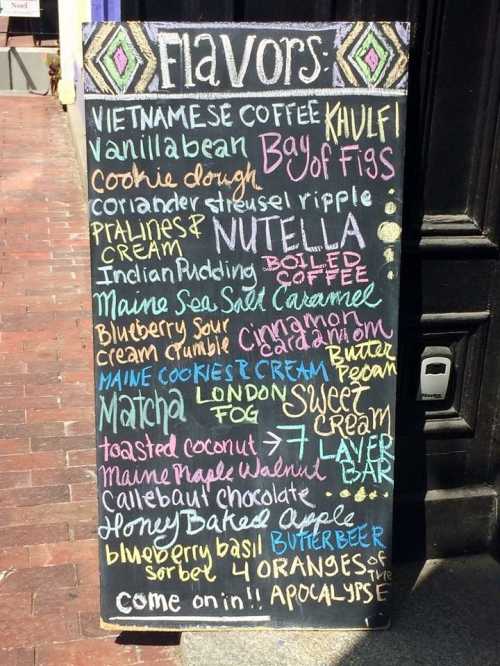 Noel
Flavors:
VIETNAMESE COFFEE KHULFI
vanilla bean Bay of Figs
Cookie dough
coriander streusel ripple
PRALINES & CREAM NUTELLA
Indian Pudding BOILED COFFEE
Maine Sea Salt Caramel
Blueberry Sour Cream Crumble Cinnamon Cardamom
MAINE COOKIES & CREAM Butter Pecan
Matcha LONDON FOG Sweet Cream
toasted coconut → 7 LAYER BAR
Maine Maple Walnut
Callebaut Chocolate
Honey Baked Apple
blueberry basil sorbet BUTTERBEER
4 ORANGES OF THE APOCALYPSE
come on in!!